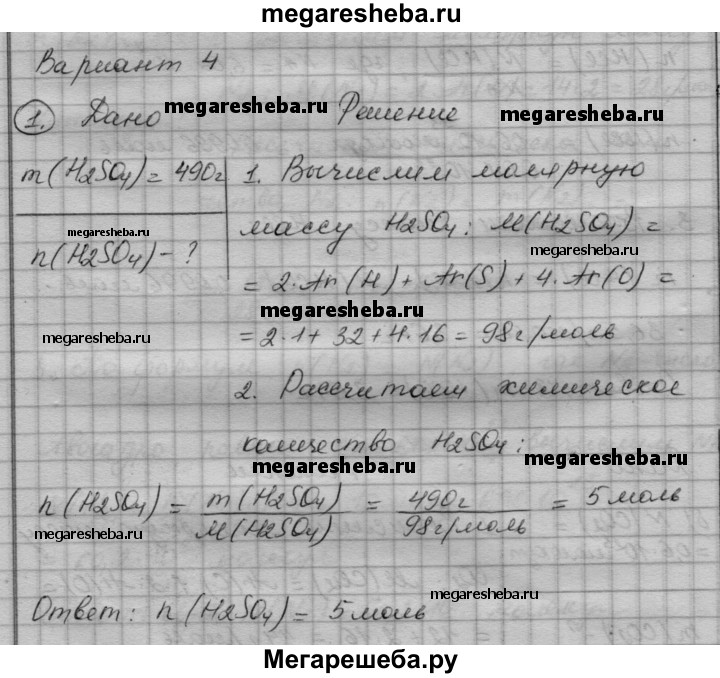 megaresheba.ru
Вариант 4
1. Дано megaresheba.ru Решение megaresheba.ru
m(H2SO4) = 490г
megaresheba.ru
n(H2SO4) - ?
megaresheba.ru
1. Вычислим молярную
массу H2SO4: M(H2SO4) =
megaresheba.ru
= 2·Ar(H) + Ar(S) + 4·Ar(O) =
megaresheba.ru
= 2·1 + 32 + 4·16 = 98г/моль
2. Рассчитаем химическое
количество H2SO4:
megaresheba.ru megaresheba.ru
n(H2SO4) = m(H2SO4) / M(H2SO4) = 490г / 98г/моль = 5 моль
megaresheba.ru
megaresheba.ru
Ответ: n(H2SO4) = 5 моль
megaresheba.ru
Мегарешеба.ру